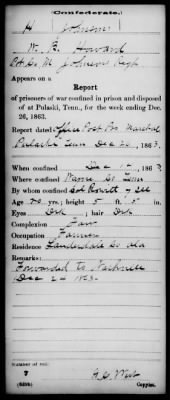 Confederate.
H Johnson
W. E. Howard
Pvt Co M Johnson Regt
Appears on a
Report
of prisoners of war confined in prison and disposed
of at Pulaski, Tenn., for the week ending Dec.
26, 1863.
Report dated Office Post Pro Marshal
Pulaski Tenn Dec 26, 1863
When confined Dec 1, 1863
Where confined Wayne Co Tenn
By whom confined
Age 20 yrs; height 5 ft. 5 in.
Eyes Drk; hair Drk
Complexion Fair
Occupation Farmer
Residence Lauderdale Co Ala
Remarks:
Forwarded to Nashville
Dec 2 1863.
Number of roll:
7
Copyist.